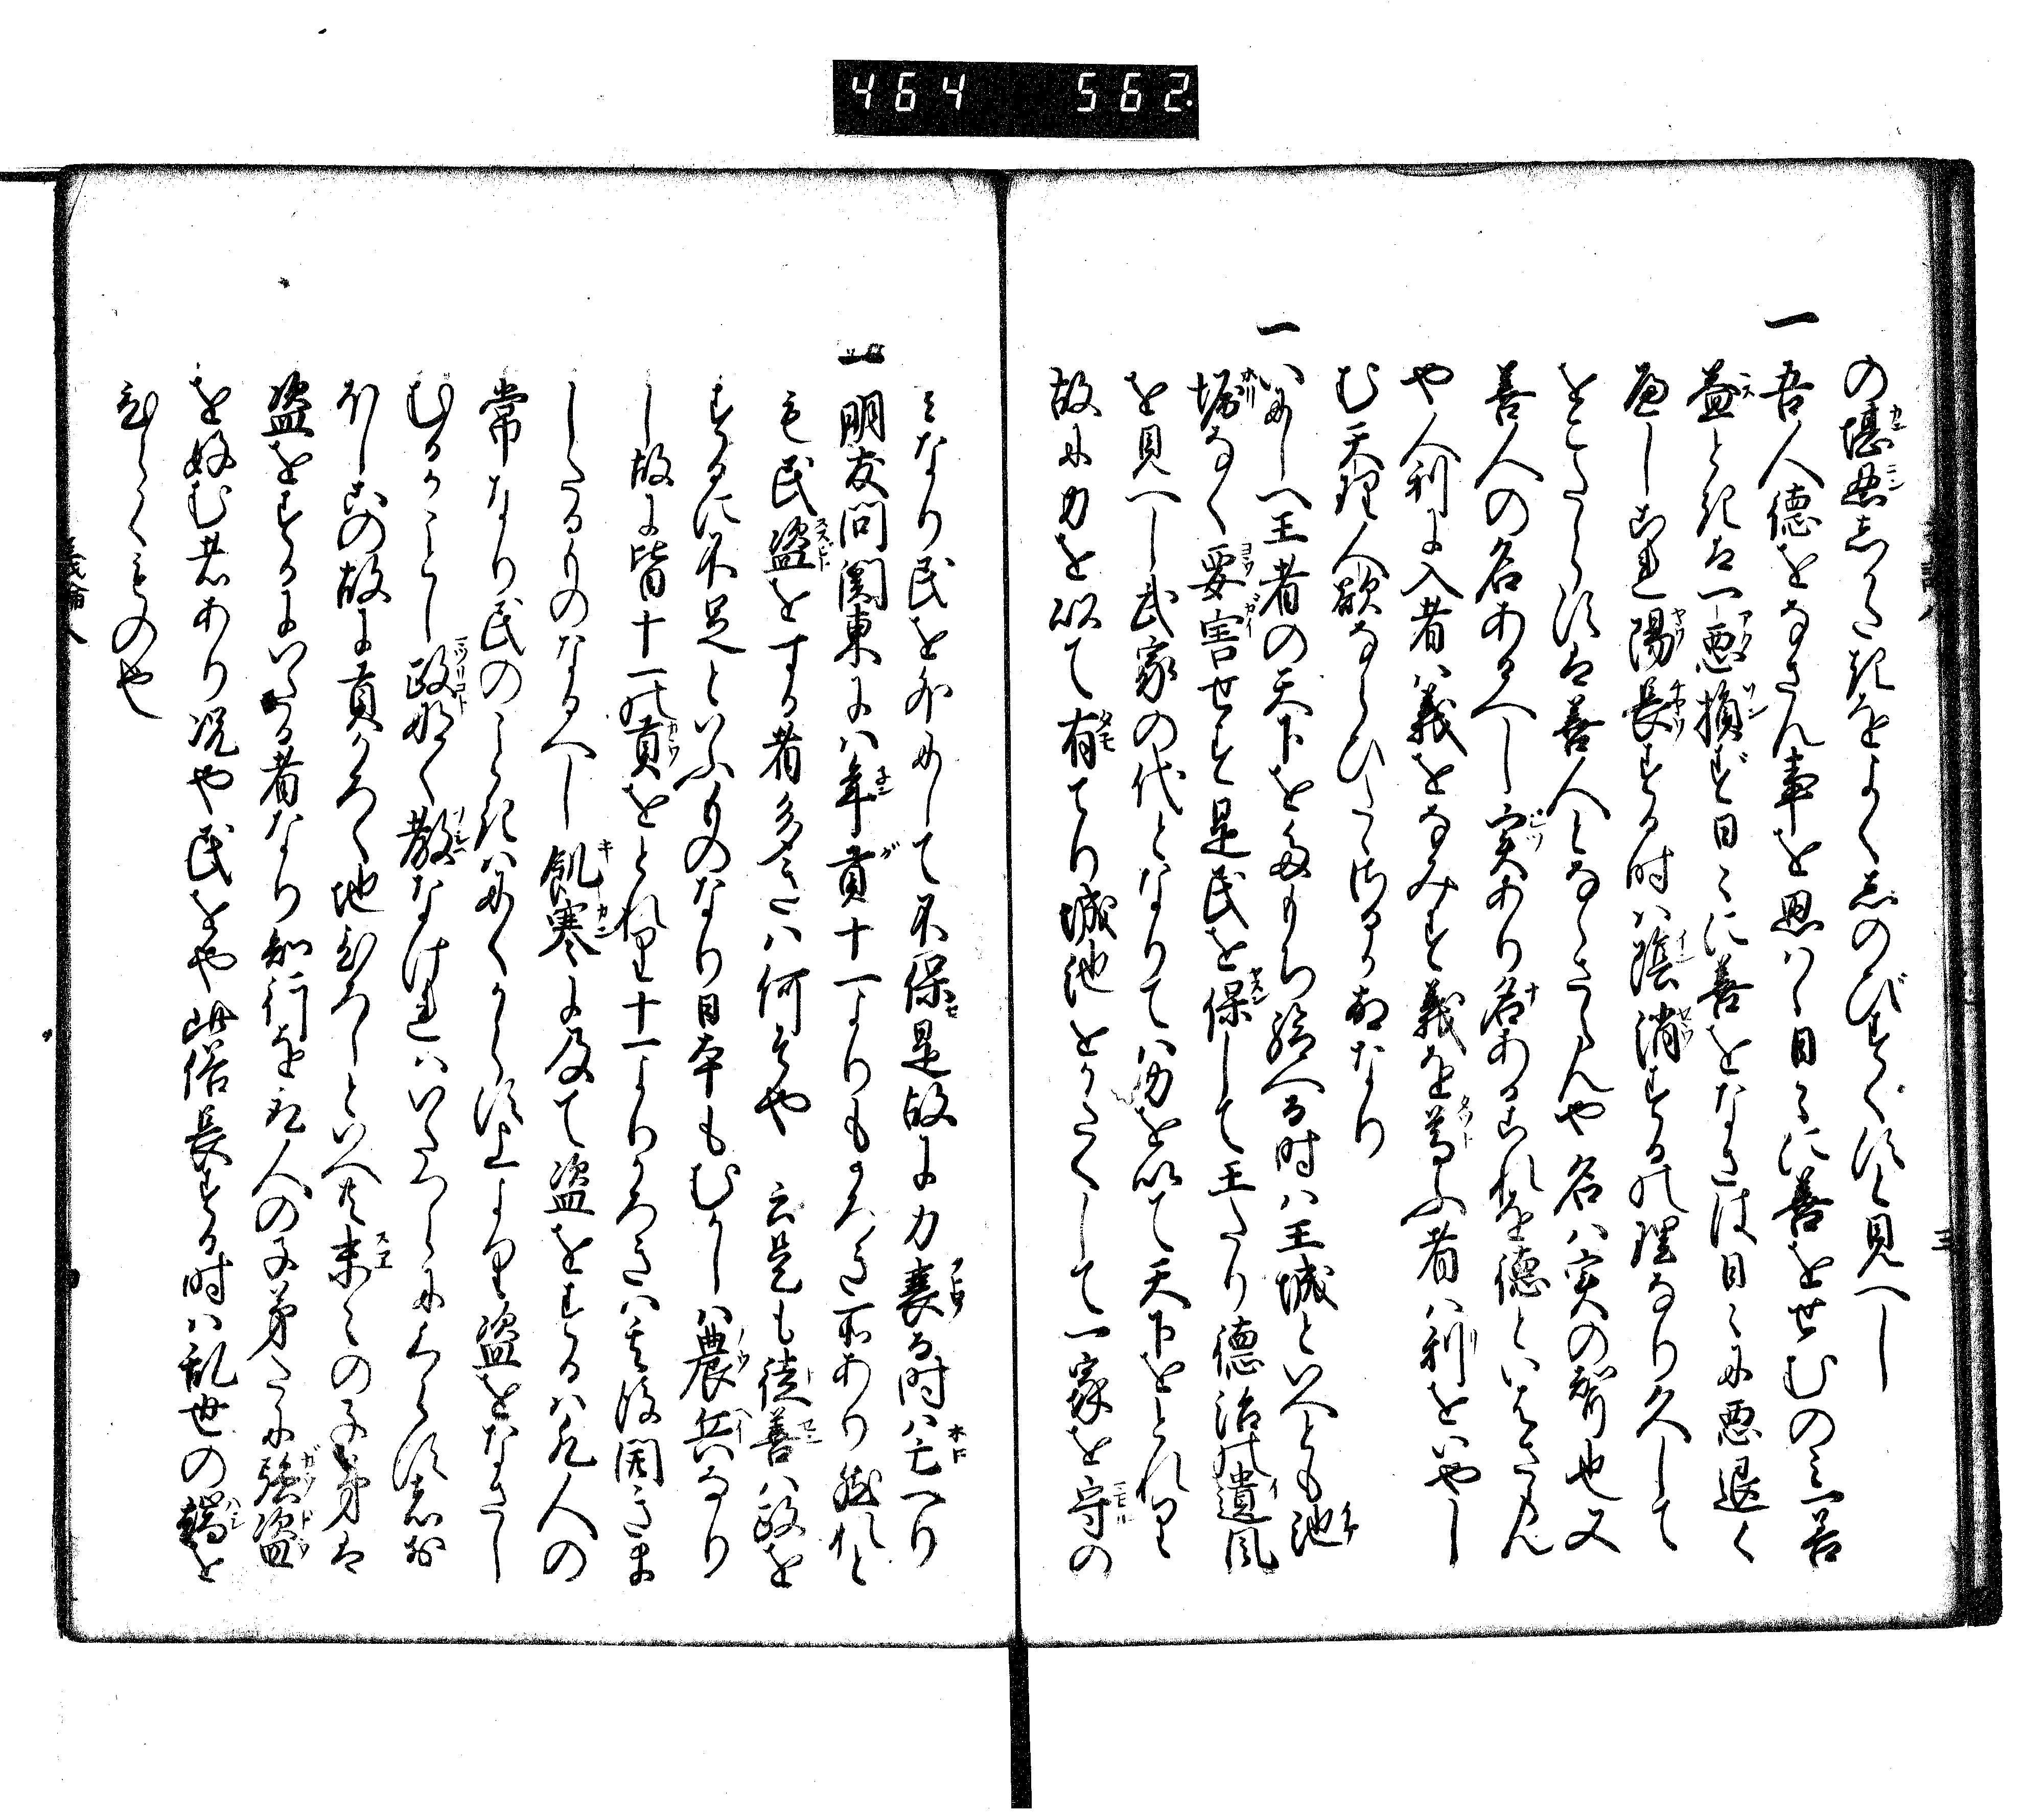 464 562
三
の堪忍しがたきをよくしのびすぐすと見へし
一 吾人徳をなさん事を思はゝ日々に善をせむのミ一善
益ときは一悪損ず日々に善をなさは日々に悪退く
へし是陽長する時ハ陰消するの理なり久して
をこたらずは善人とならさらんや名ハ実の賓也又
善人の名あるへし実あり名あるこれを徳といはさらん
や人利に入者ハ義をなみす義を尊ふ者ハ利をいやし
む天理人欲ならひたゝざるか故なり
一 いにしへ王者の天下をたもち給へる時ハ王城といへとも池
堀なく要害せす是民を保して王たり徳治の遺風
を見へし武家の代となりてハ力を以て天下をとれり
故に力を以て有てり城池をかたくして一家を守の
ミなり民を外にして不保是故に力衰る時ハ亡へり
一 朋友問関東にハ年貢十一よりもかろき所あり然れと
も民盗をする者多きハ何そや 云是も徒善ハ政を
するに不足といふものなり日本もむかしハ農兵なり
し故に皆十一の貢をとれり十一よりかろきハ其後開きま
したるものなるへし飢寒に及て盗をするハ凡人の
常なり民のときハにくからず上より盗をなさし
むるかことし政なく教なけれハいたつらにくらす者お
ほし其の故に貢かろく地ひろしといへ共末々の子弟は
盗をするにいたる者なり知行を取人の子弟たに強盗
を好む者あり况や民をや此俗長する時ハ乱世の端を
ひらくものや
義論八